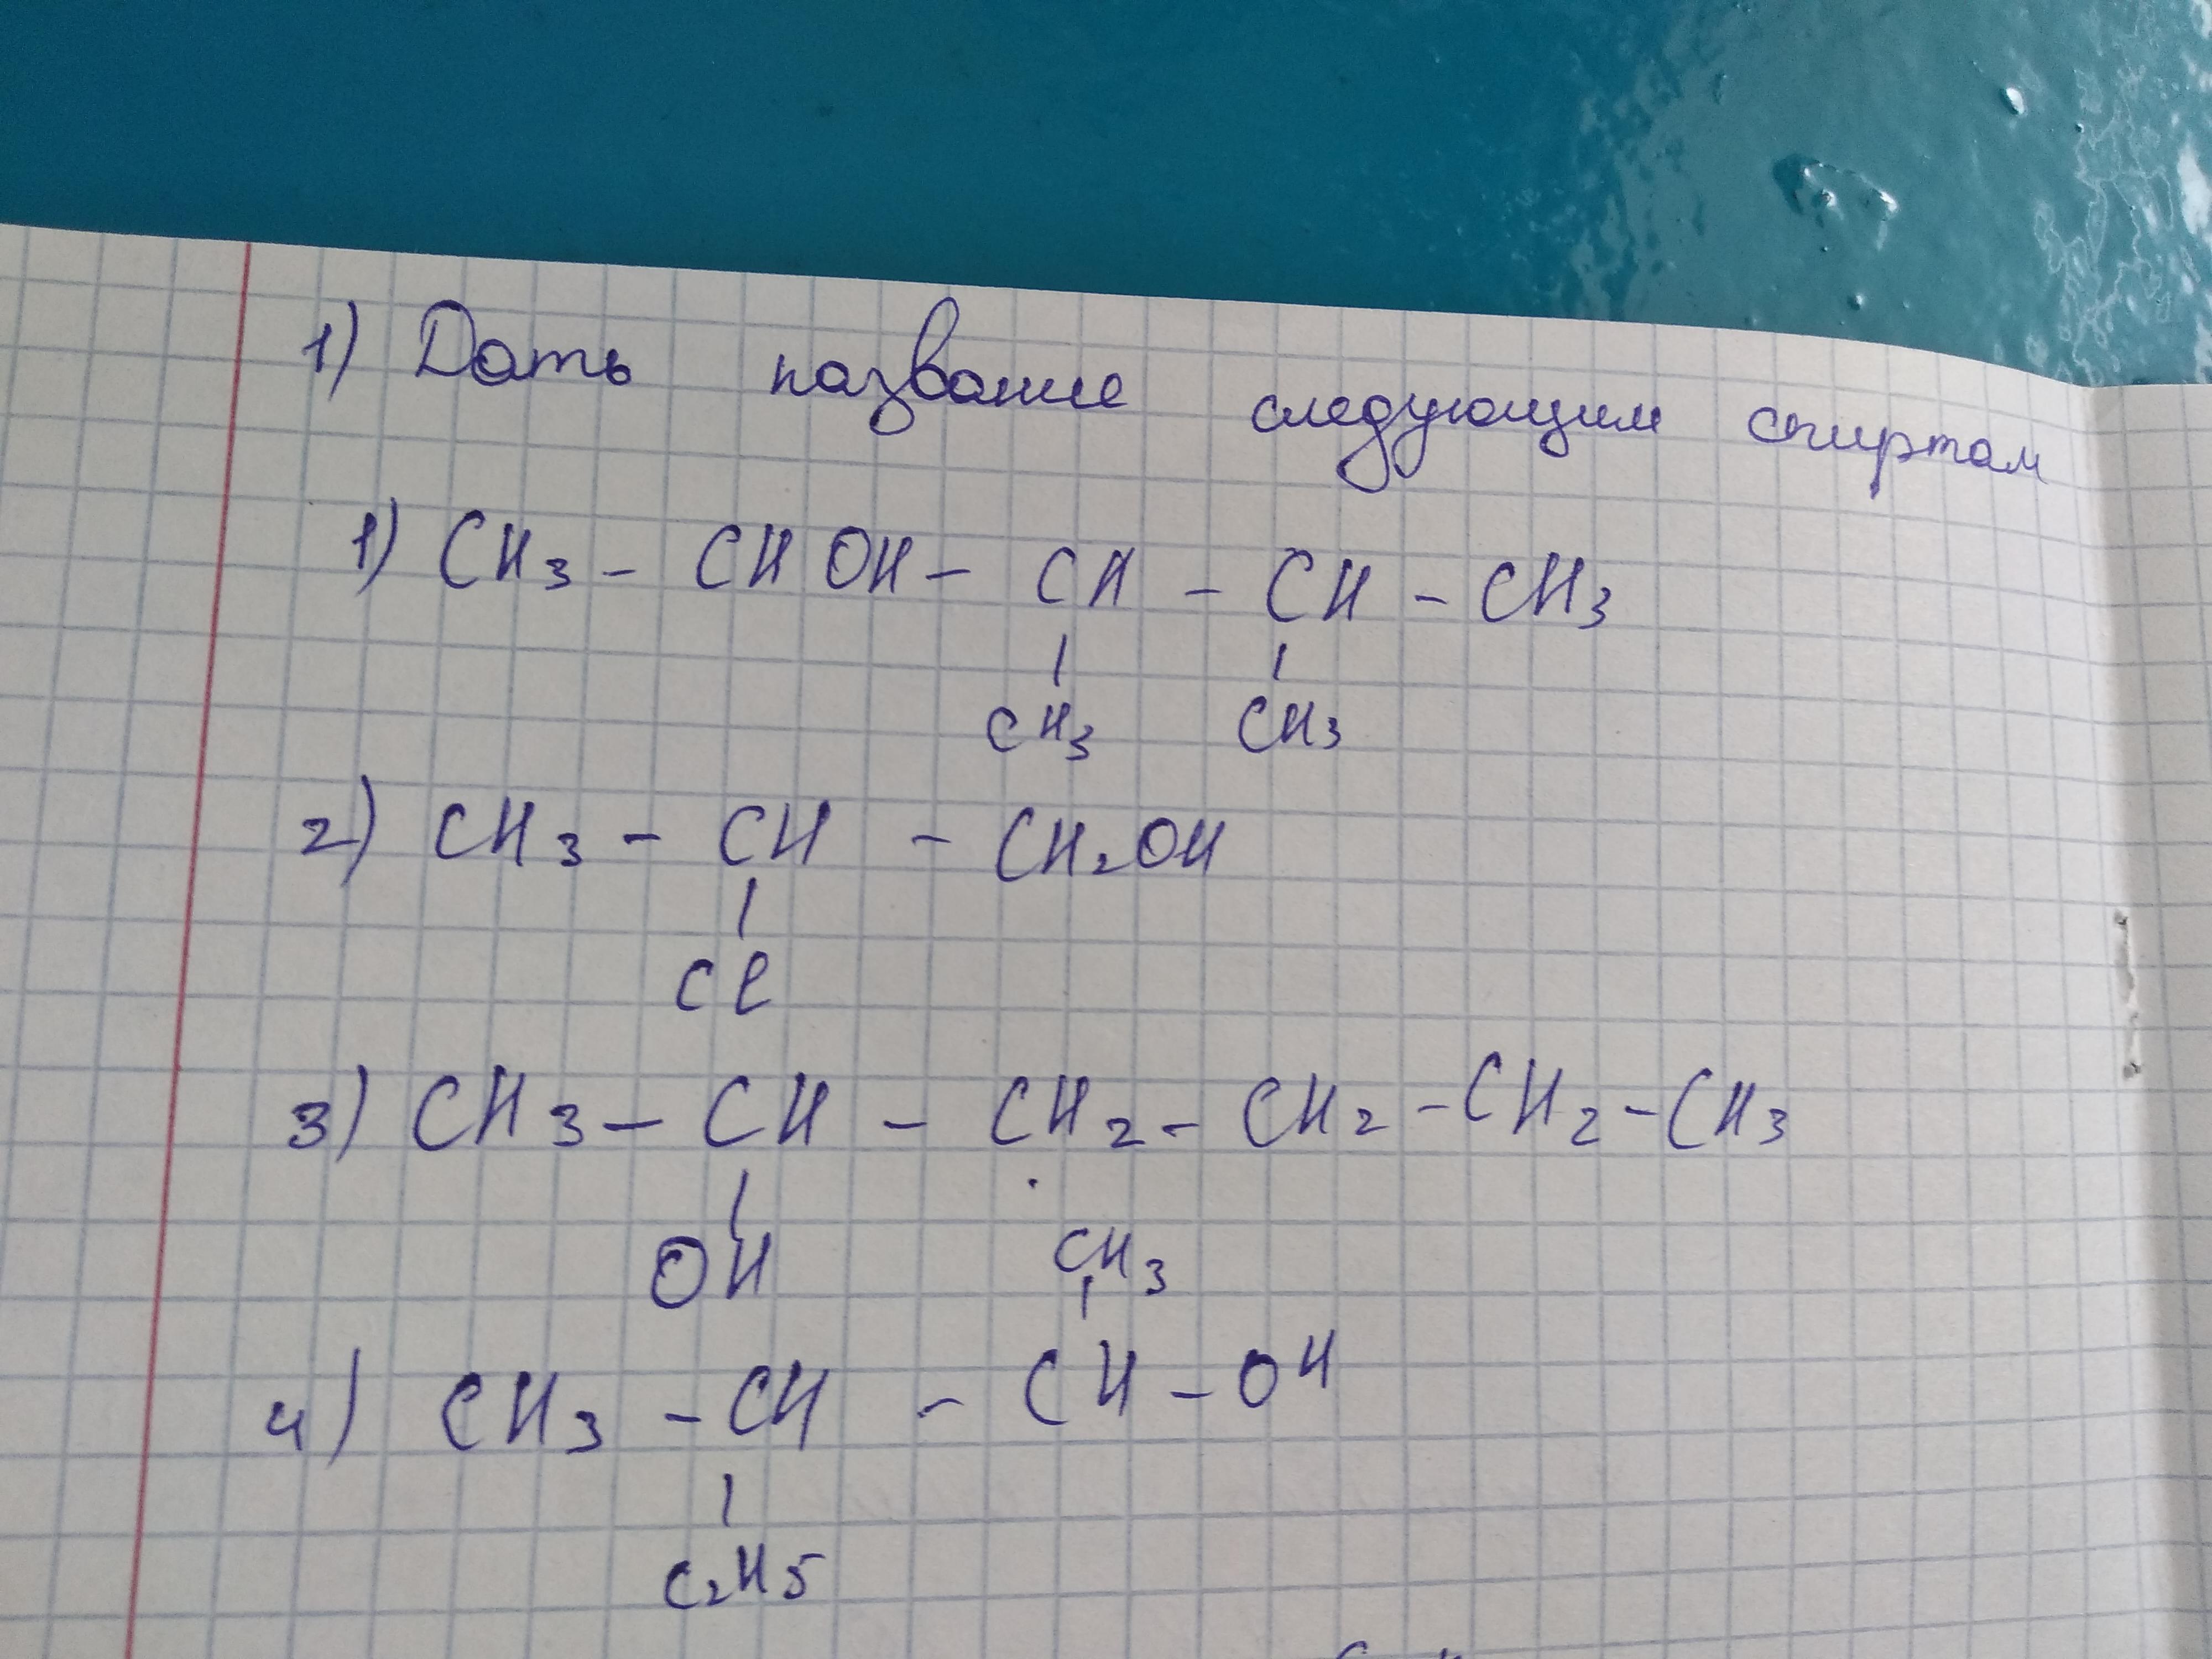 1) Дать название следующим спиртам
1) CH3 - CHOH - CH - CH - CH3
CH3 CH3
2) CH3 - CH - CH2OH
Cl
3) CH3 - CH - CH2 - CH2 - CH2 - CH3
OH CH3
4) CH3 - CH - CH - OH
C2H5